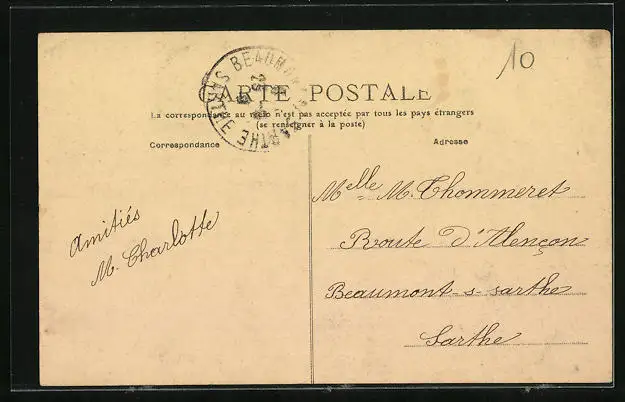 10
CARTE POSTALE
La correspondance au recto n'est pas acceptée par tous les pays étrangers
(se renseigner à la poste)
Correspondance
Adresse
Amitiés
M. Charlotte
Melle M. Thommeret
Route d'Alençon
Beaumont-s-sarthe
Sarthe
BEAUMONT
SARTHE